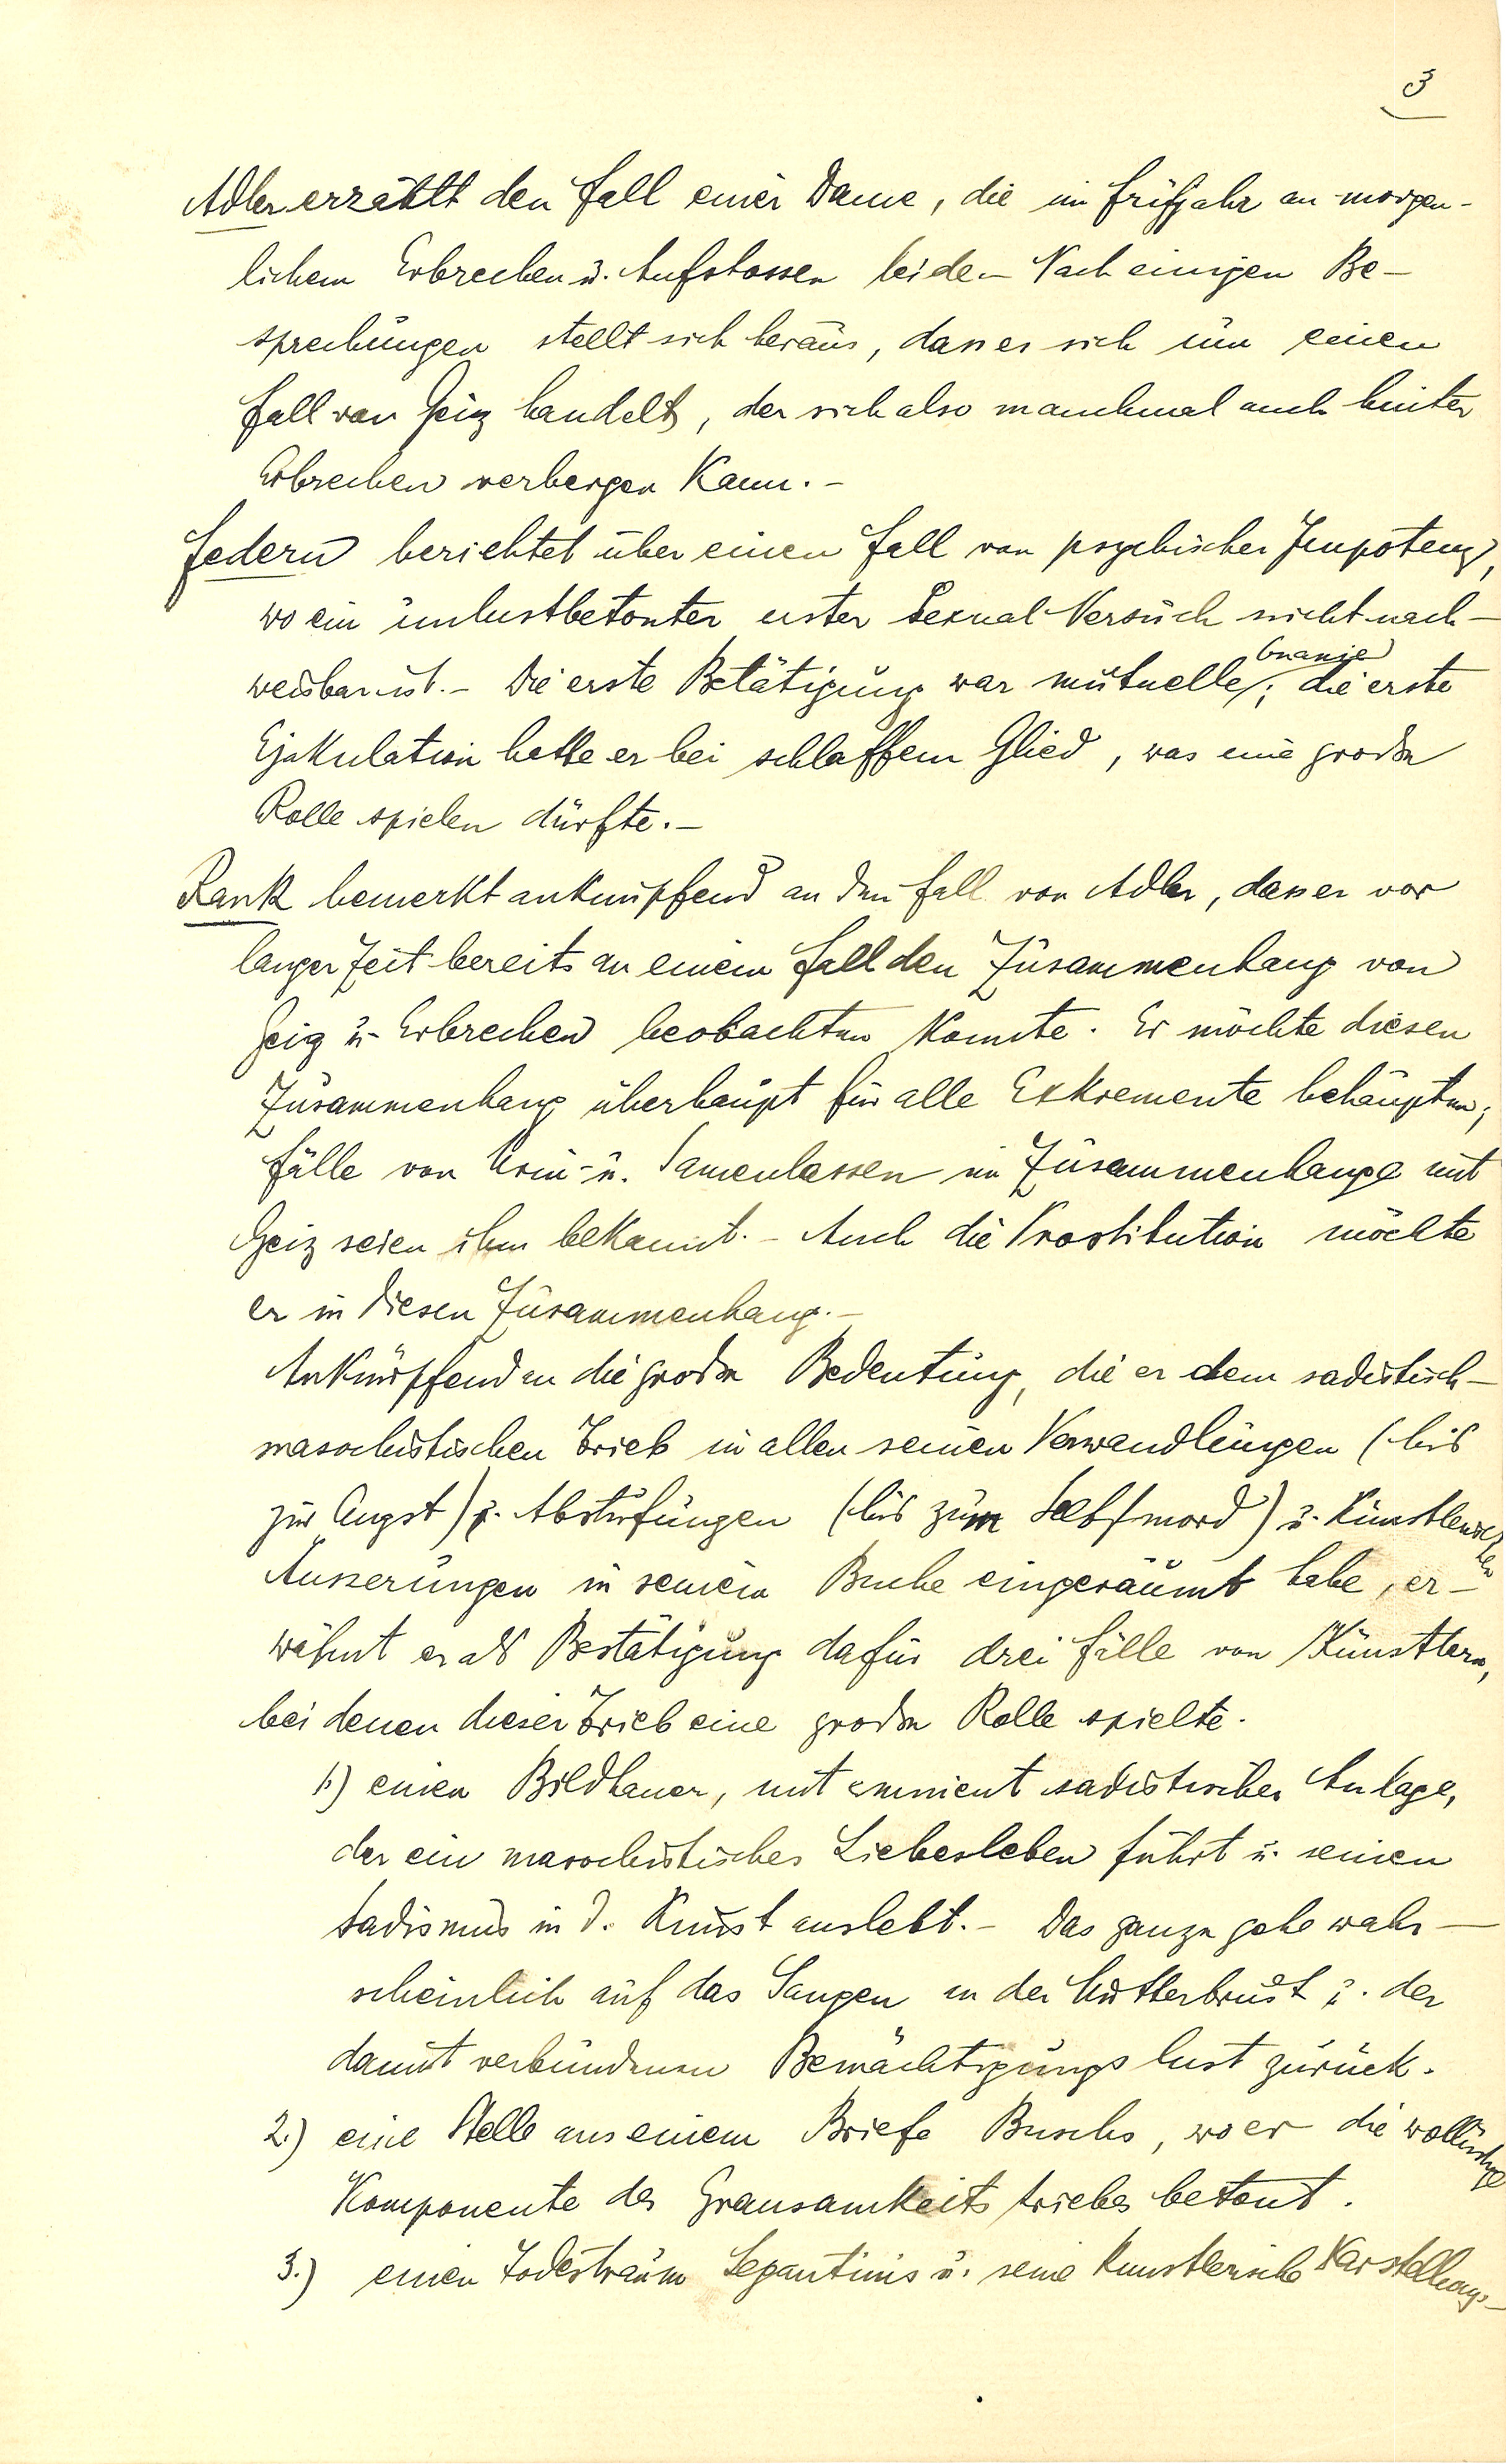 3
Adler erzählt den Fall einer Dame, die im Frühjahr an morgen-
lichem Erbrechen u. Aufstossen leide.- Nach einigen Be-
sprechungen stellt sich heraus, dass es sich um einen
Fall von Geiz handelt, der sich also manchmal auch hinter
Erbrechen verbergen kann.-
Federn berichtet über einen Fall von psychischer Impotenz,
wo ein unlustbetonter erster Sexual Versuch nicht nach-
weisbar ist.- Die erste Betätigung war mutuelle Onanie; die erste
Ejakulation hatte er bei schlaffem Glied, was eine grosse
Rolle spielen dürfte.-
Rank bemerkt anknüpfend an den Fall von Adler, dass er vor
langer Zeit bereits an einem Fall den Zusammenhang von
Geiz u. Erbrechen beobachten konnte. Er möchte diesen
Zusammenhang überhaupt für alle Exkremente behaupten;
Fälle von Urin- u. Samenlassen im Zusammenhange mit
Geiz seien ihm bekannt.- Auch die Prostitution möchte
er in diesen Zusammenhang.-
Anknüpfend an die grosse Bedeutung, die er dem sadistisch-
masochistischen Trieb in allen seinen Verwandlungen (bis
zur Angst) u. Abstufungen (bis zum Selbstmord) u. künstlerischen
Äusserungen in seinem Buche eingeräumt habe, er-
wähnt er als Bestätigung dafür drei Fälle von Künstlern,
bei denen dieser Trieb eine grosse Rolle spielte.
1.) einen Bildhauer, mit eminent sadistischer Anlage,
der ein masochistisches Liebesleben führt u. seinen
Sadismus in d. Kunst auslebt.- Das ganze gehe wahr-
scheinlich auf das Saugen an der Mutterbrust u. der
damit verbundenen Bemächtigungslust zurück.
2.) eine Stelle aus einem Briefe Buschs, wo er die wollüstige
Komponente des Grausamkeitstriebes betont.
3.) einen Todestraum Segantinis u. seine künstlerische Darstellungs-